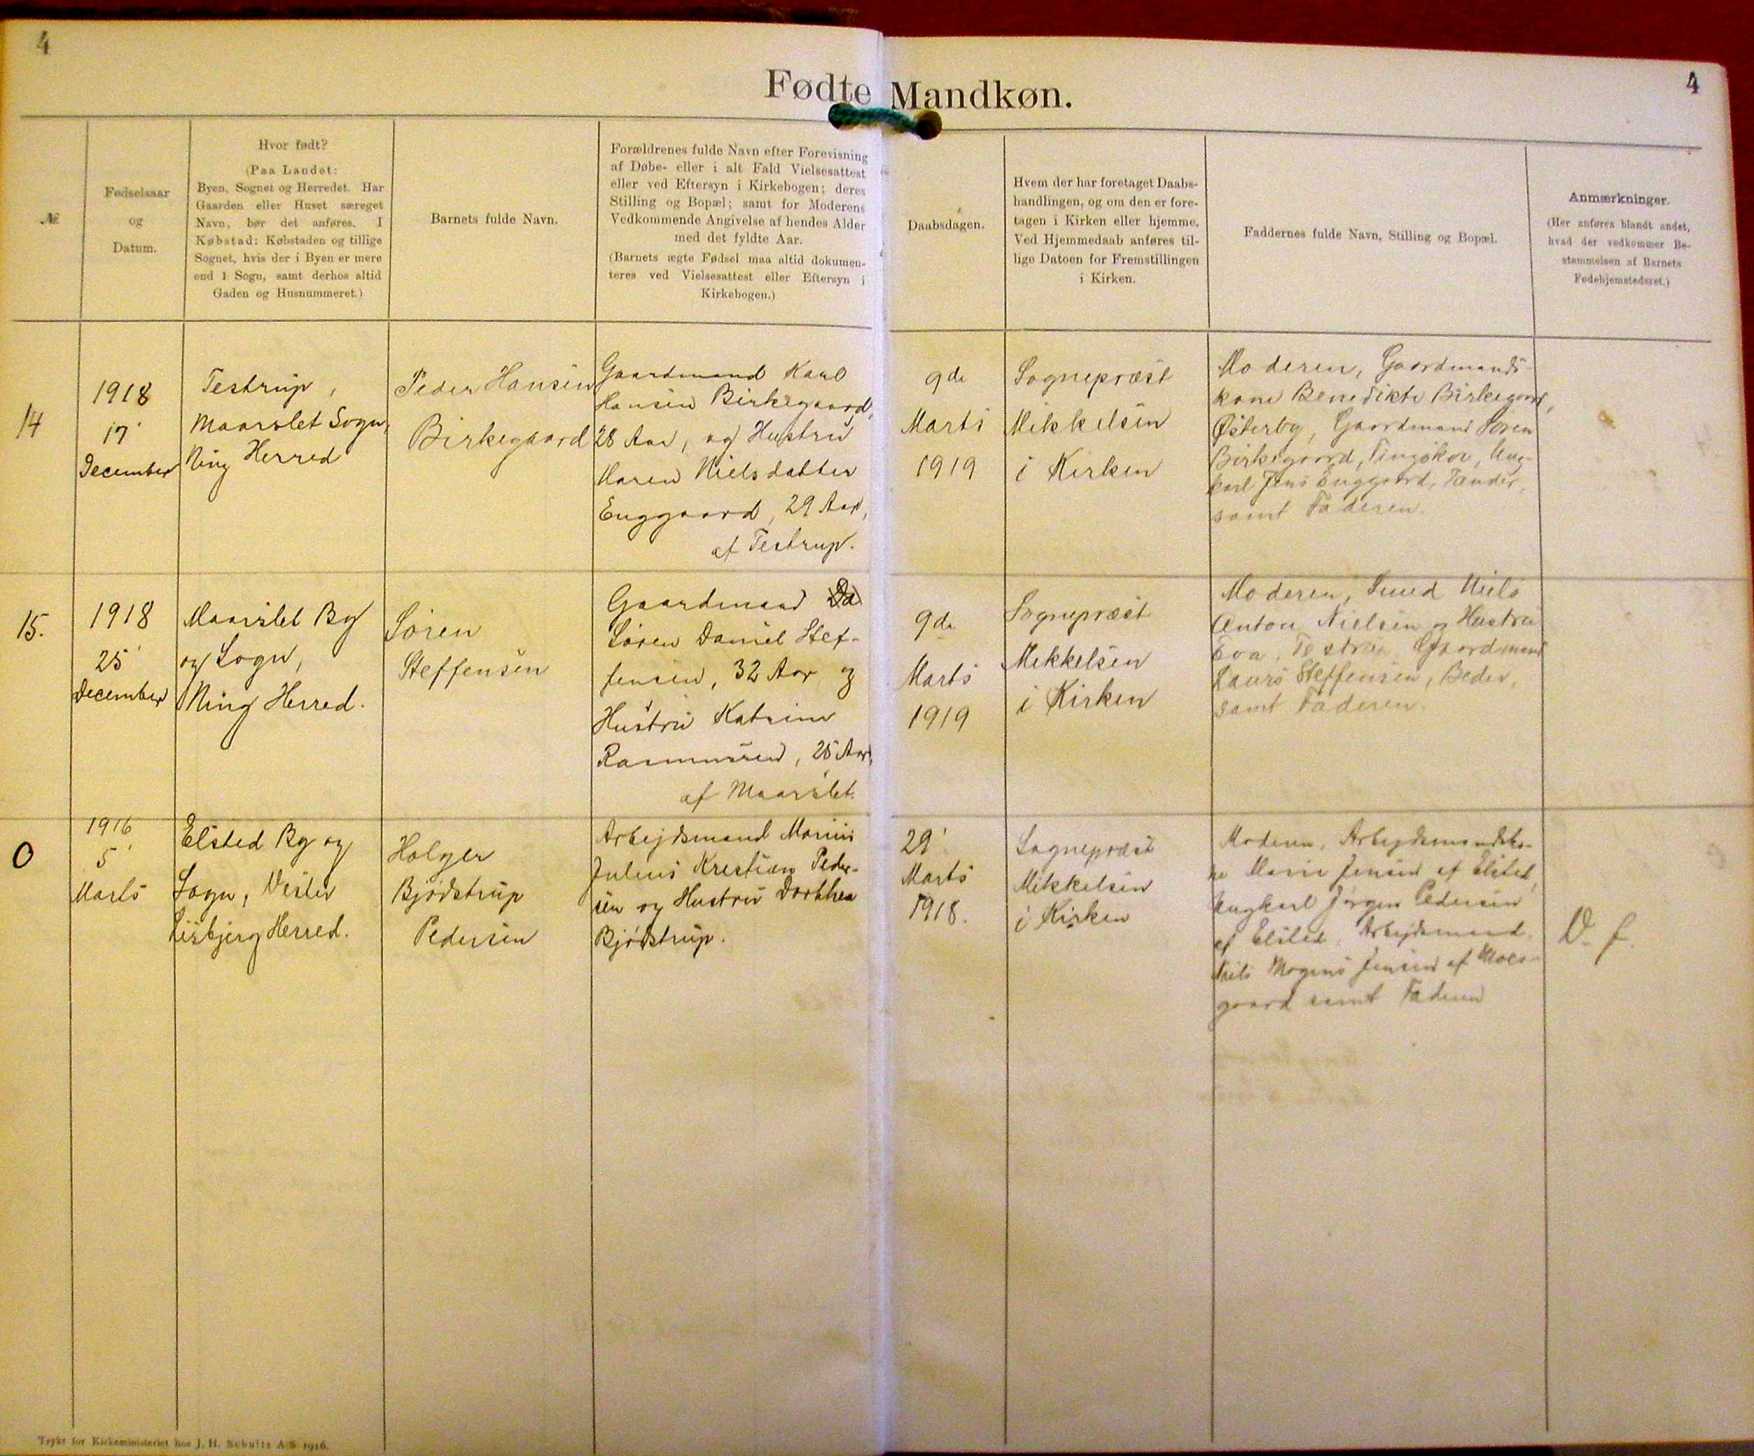 4
4
Fødte Mandkøn.
№
Fødselsaar
og
Datum.
Hvor født?
(Paa Landet:
Byen, Sognet og Herredet. Har
Gaarden eller Huset særeget
Navn, bør det anføres. I
Købstad: Købstaden og tillige
Sognet, hvis der i Byen er mere
end 1 Sogn, samt derhos altid
Gaden og Husnummeret.)
Barnets fulde Navn.
Forældrenes fulde Navn efter Forevisning
af Døbe- eller i alt Fald Vielsesattest
eller ved Eftersyn i Kirkebogen; deres
Stilling og Bopæl; samt for Moderens
Vedkommende Angivelse af hendes Alder
med det fyldte Aar.
(Barnets ægte Fødsel maa altid dokumen-
teres ved Vielsesattest eller Eftersyn i
Kirkebogen.)
Daabsdagen.
Hvem der har foretaget Daabs-
handlingen, og om den er fore-
tagen i Kirken eller hjemme.
Ved Hjemmedaab anføres til-
lige Datoen for Fremstillingen
i Kirken.
Faddernes fulde Navn, Stilling og Bopæl.
Anmærkninger.
(Her anføres blandt andet,
hvad der vedkommer Be-
stemmelsen af Barnets
Fødehjemstedsret.)
14
1918
17'
December
Testrup,
Maarslet Sogn,
Ning Herred
Peder Hansen
Birkegaard
Gaardmand Karl
Hansen Birkegaard,
28 Aar, og Hustru
Maren Nielsdatter
Enggaard, 29 Aar,
af Testrup.
9de
Marts
1919
Sognepræst
Mikkelsen
i Kirken
Moderen, Gaardmands-
kone Benedikte Birkegaard,
Østerby, Gaardmand Søren
Birkegaard, Tingskov, Ung-
karl Jens Enggaard, Tander,
samt Faderen.
15.
1918
25'
December
Maarslet By
og Sogn,
Ning Herred.
Søren
Steffensen
Gaardmand Da
Søren Daniel Stef-
fensen, 32 Aar og
Hustru Katrine
Rasmussen, 25 Aar,
af Maarslet.
9de
Marts
1919
Sognepræst
Mikkelsen
i Kirken
Moderen, Smed Niels
Anton Nielsen og Hustru
Eva, Gaardmand
Laurs Steffensen, Beder,
samt Faderen.
0
1916
5'
Marts
Elsted By og
Sogn, Vester
Lisbjerg Herred.
Holger
Bjødstrup
Pedersen
Arbejdsmand Marius
Julius Kristian Peder-
sen og Hustru Dorthea
Bjødstrup.
29'
Marts
1918.
Sognepræst
Mikkelsen
i Kirken
Moderen, Arbejdsmandsko-
ne Marie Jensen af Elsted,
Ungkarl Jørgen Pedersen
af Elsted, Arbejdsmand
Niels Mogens Jensen af Moes-
gaard samt Faderen
D. f.
Trykt for Kirkeministeriet hos J. H. Schultz A/S 1916.